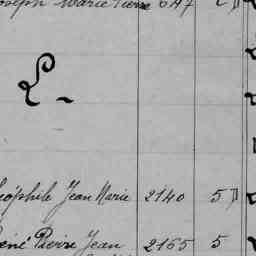 Joseph Marie Pierre 647
L.
Théophile Jean Marie 2140 5
René Pierre Jean 2165 5